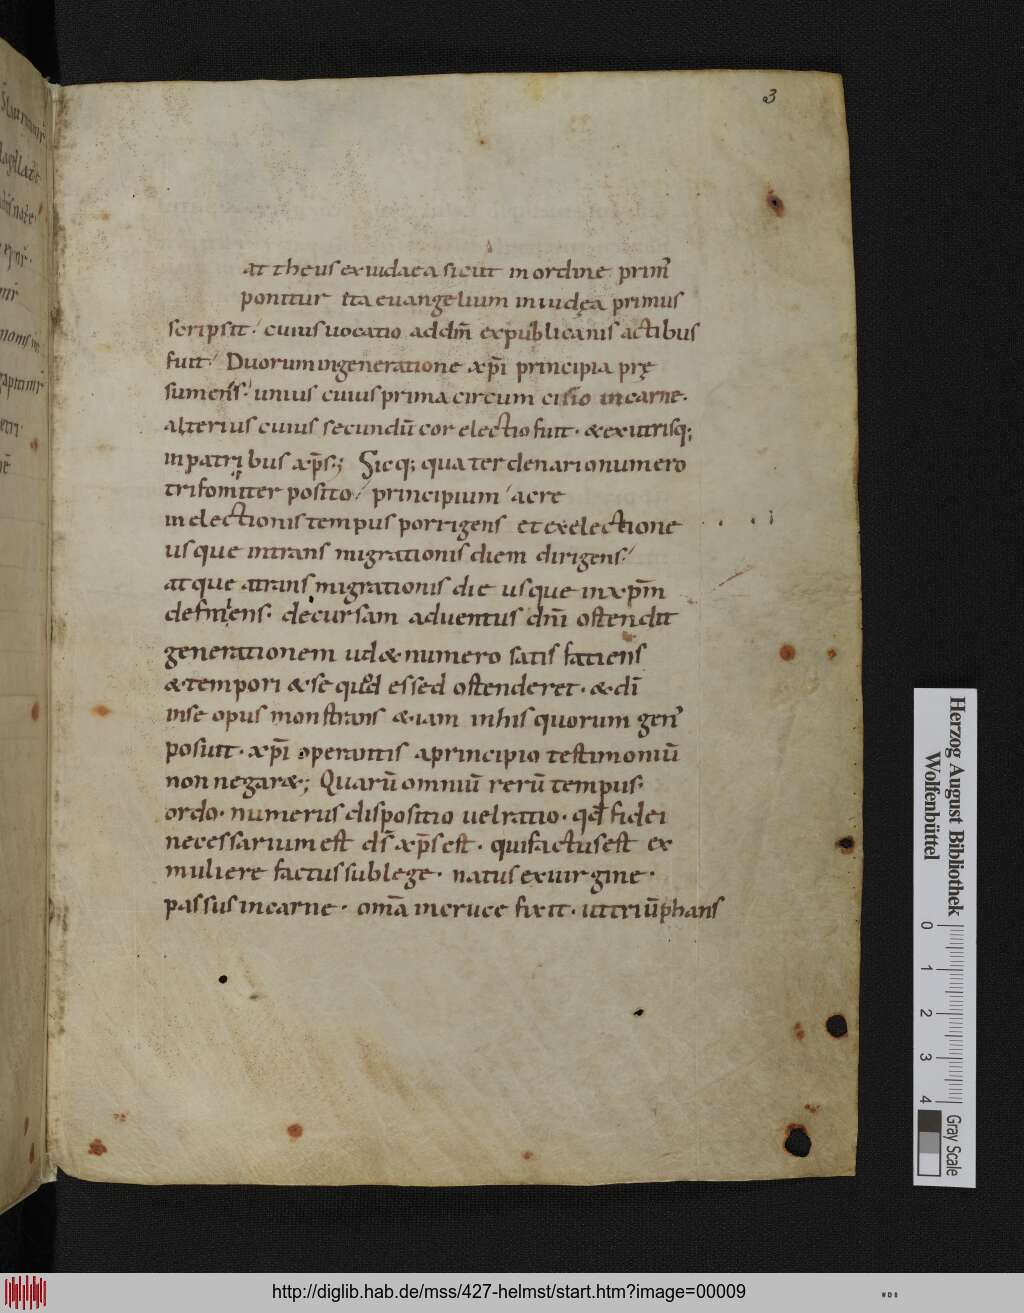 3
at theus ex iudaea sicut in ordine prim᷒
ponitur ita euangelium in iudęa primus
scripsit. cuius uocatio ad dm̄ ex publicanis actibus
fuit. Duorum in generatione xp̄i principia prę
sumens. unius cuius prima circum cisio in carne.
alterius cuius secundū cor electio fuit. & ex utrisq;
in patribus xp̄s.; Sicq; quaterdenario numero
trifomiter posito principium a cre
in electionis tempus porrigens et ex electione
usque in trans migrationis diem dirigens
atque a trans migrationis die usque in xp̄m
definiens. decursam aduentus dnī ostendit
generationem ut & numero satis faciens
& tempori & se quod essed ostenderet. & dī
in se opus monstrans & iam in his quorum gen᷒
posuit. xp̄i operantis a principio testimoniū
non negar&; Quarū omniū rerū tempus.
ordo. numerus dispositio uel ratio. qd̄ fidei
necessarium est ds̄ xp̄s est. qui factus est ex
muliere factus sub lege. natus ex uirgine.
passus in carne. omā in cruce fixit. ut triūphans
Herzog August Bibliothek
Wolfenbüttel
0 1 2 3 4
Gray Scale
http://diglib.hab.de/mss/427-helmst/start.htm?image=00009